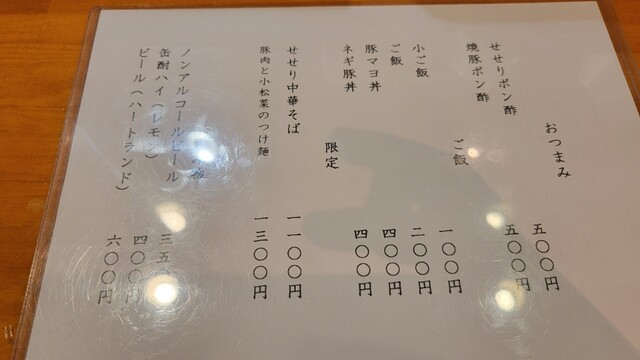 おつまみ
せせりポン酢 五〇〇円
焼豚ポン酢 五〇〇円
ご飯
小ご飯 一〇〇円
ご飯 二〇〇円
豚マヨ丼 四〇〇円
ネギ豚丼 四〇〇円
限定
せせり中華そば 一一〇〇円
豚肉と小松菜のつけ麺 一三〇〇円
ノンアルコールビール 三五
缶酎ハイ(レモン) 四〇〇円
ビール(ハートランド) 六〇〇円